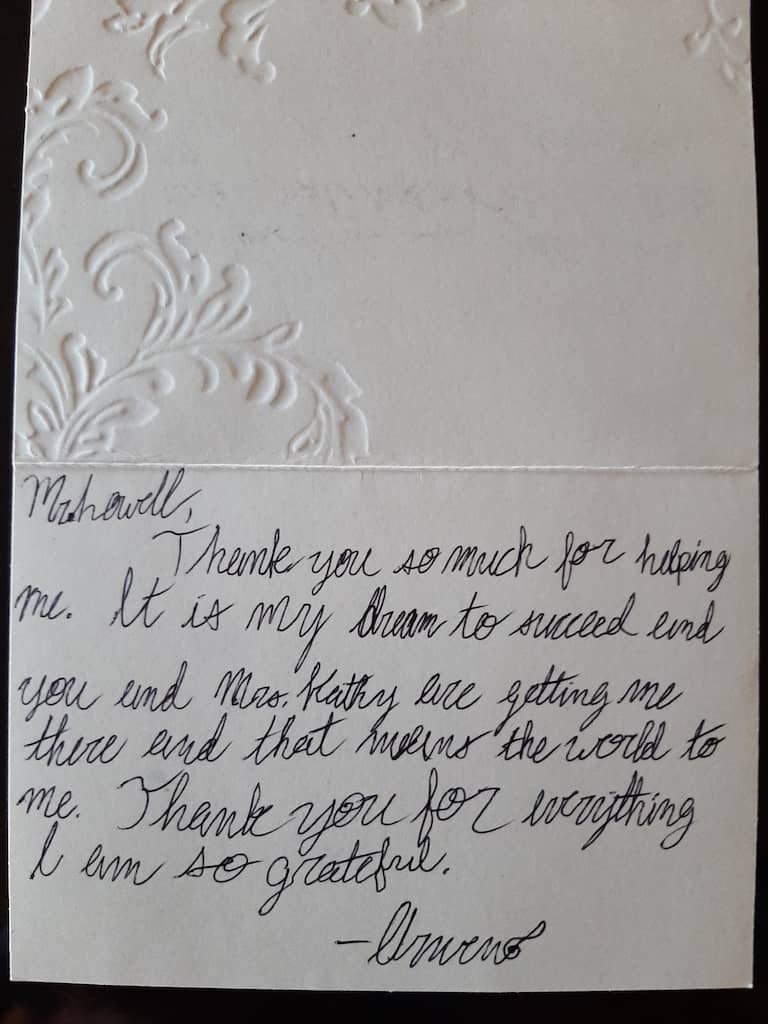 Mr. howell,
Thank you so much for helping
me. It is my dream to succeed and
you and Mrs. Kathy are getting me
there and that means the world to
me. Thank you for everything
I am so grateful.